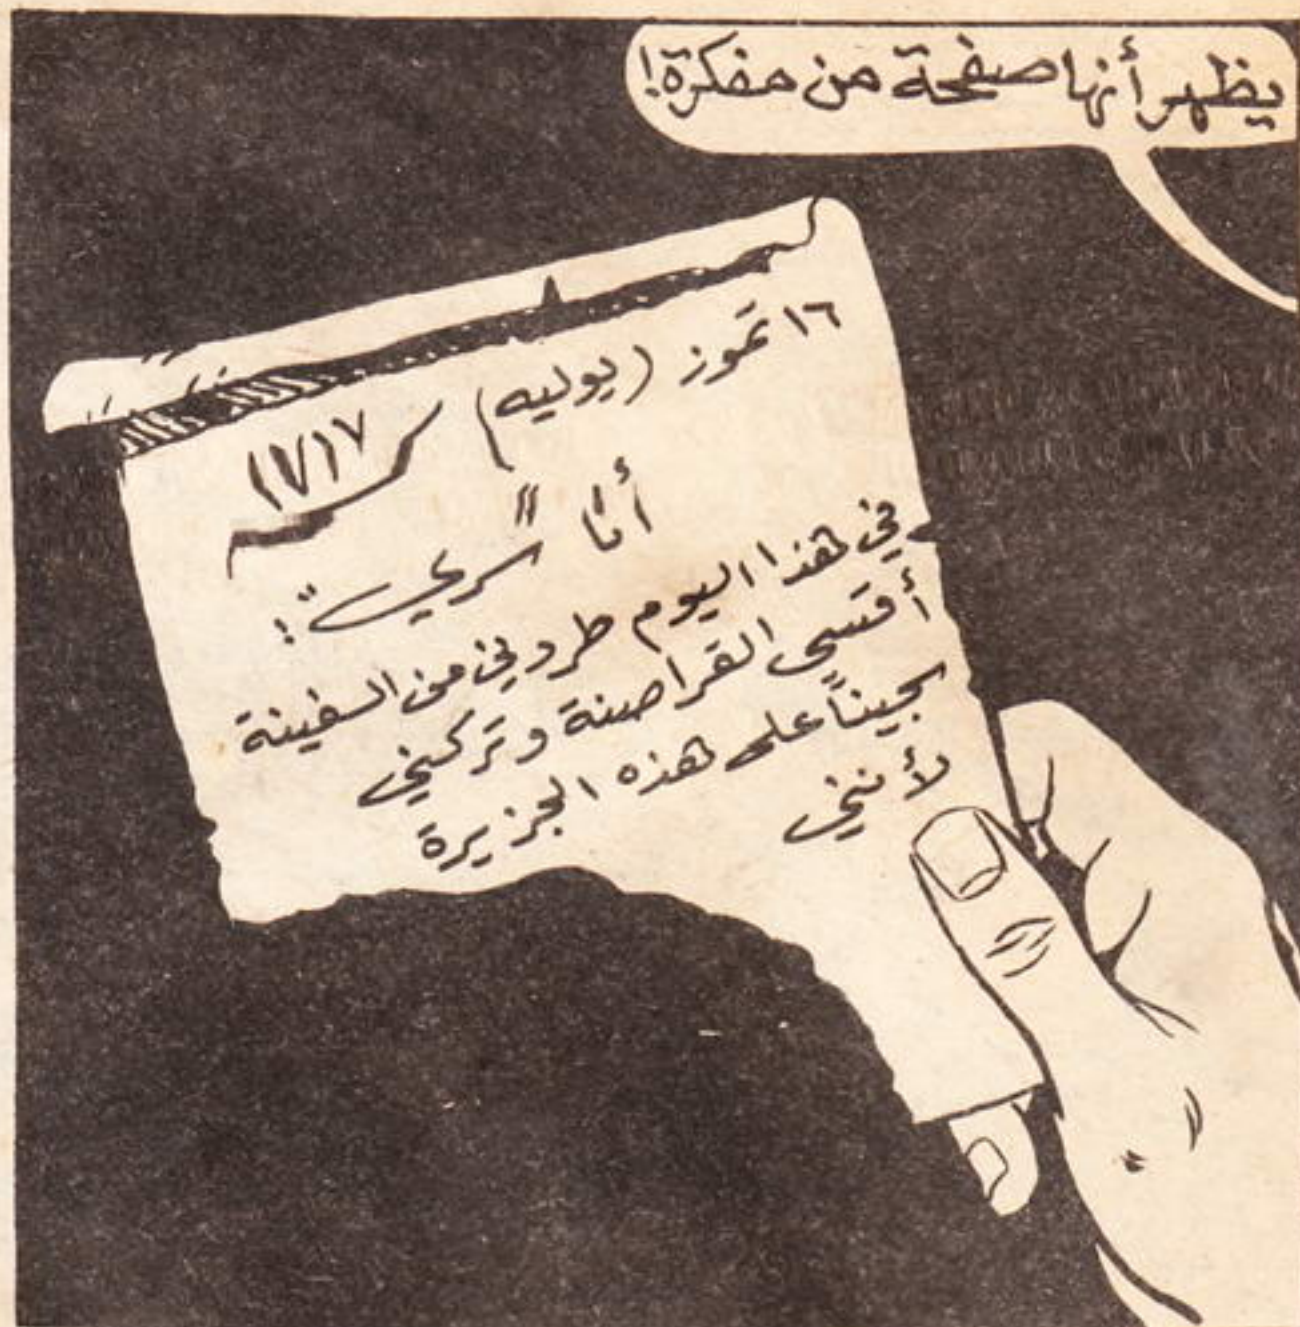 يظهر أنها صفحة من مفكرة!
١٦ تموز (يوليه) سنة ١٧١٧
أنا "سري":
في هذا اليوم طردني من السفينة
أقسى القراصنة وتركني
سجيناً على هذه الجزيرة
لأنني